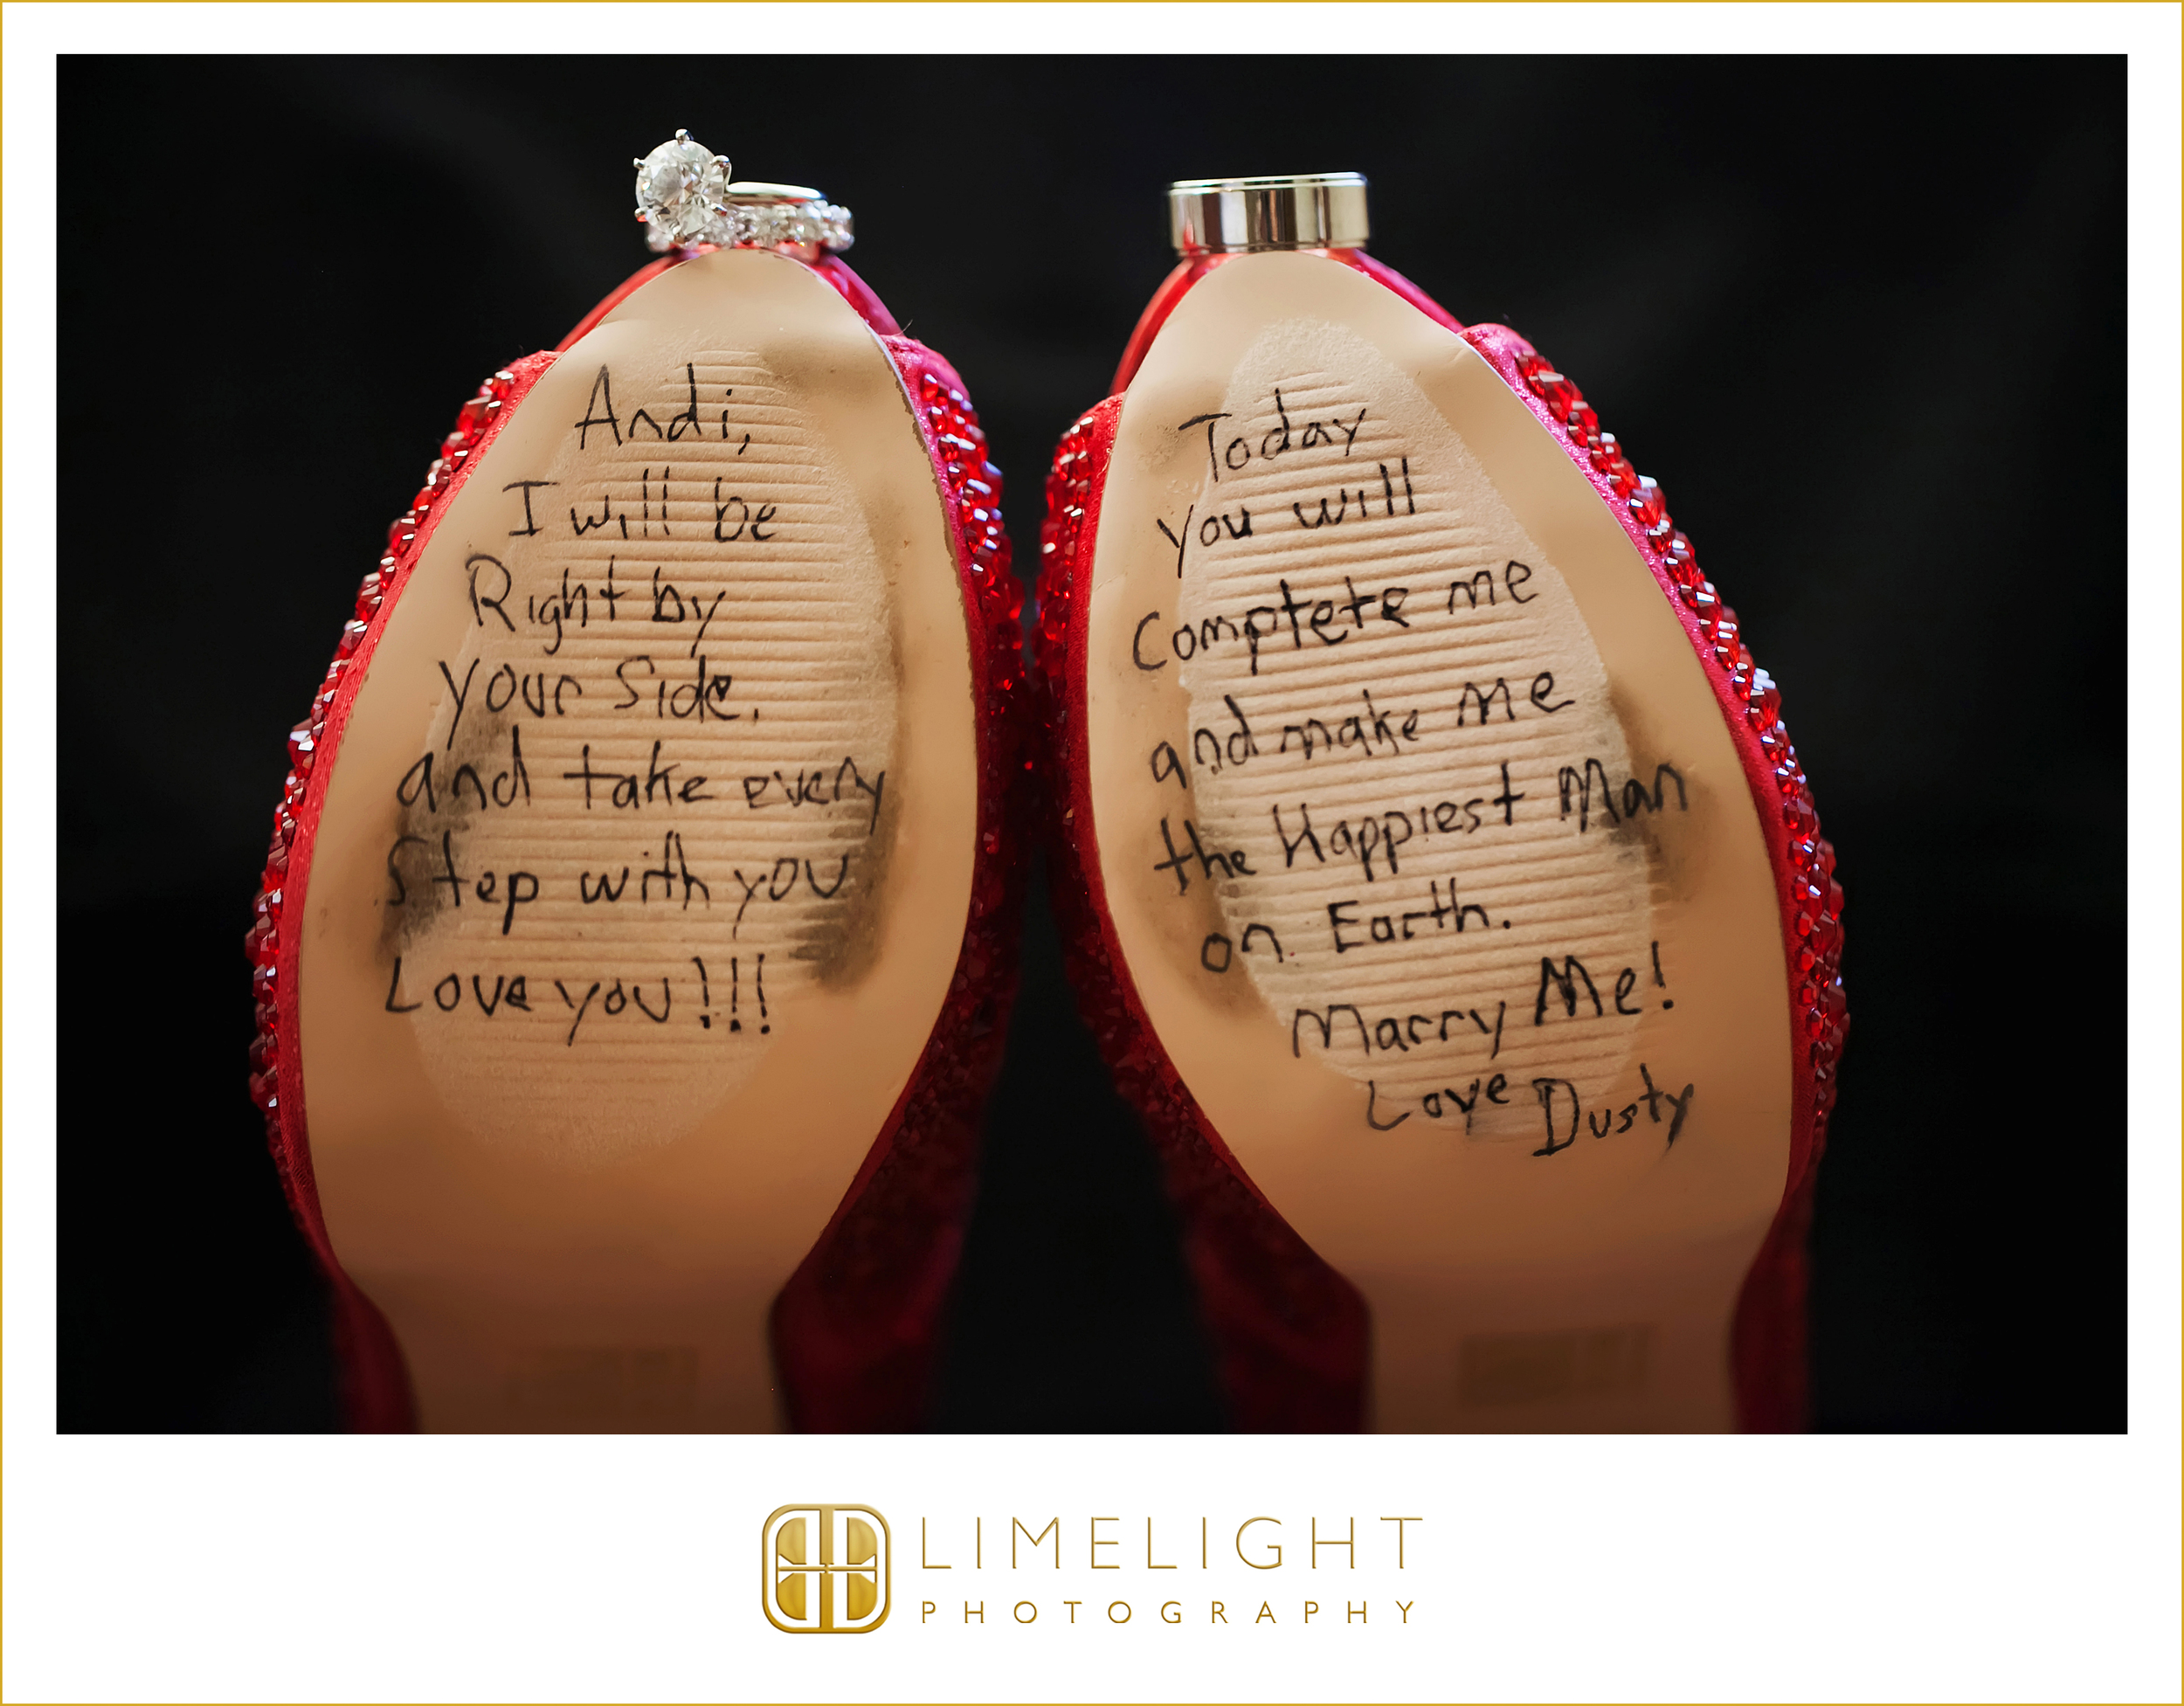 Andi,
I will be
Right by
your Side.
and take every
Step with you
Love you!!!
Today
you will
Complete me
and make me
the Happiest Man
on Earth.
Marry Me!
Love Dusty
LIMELIGHT
PHOTOGRAPHY